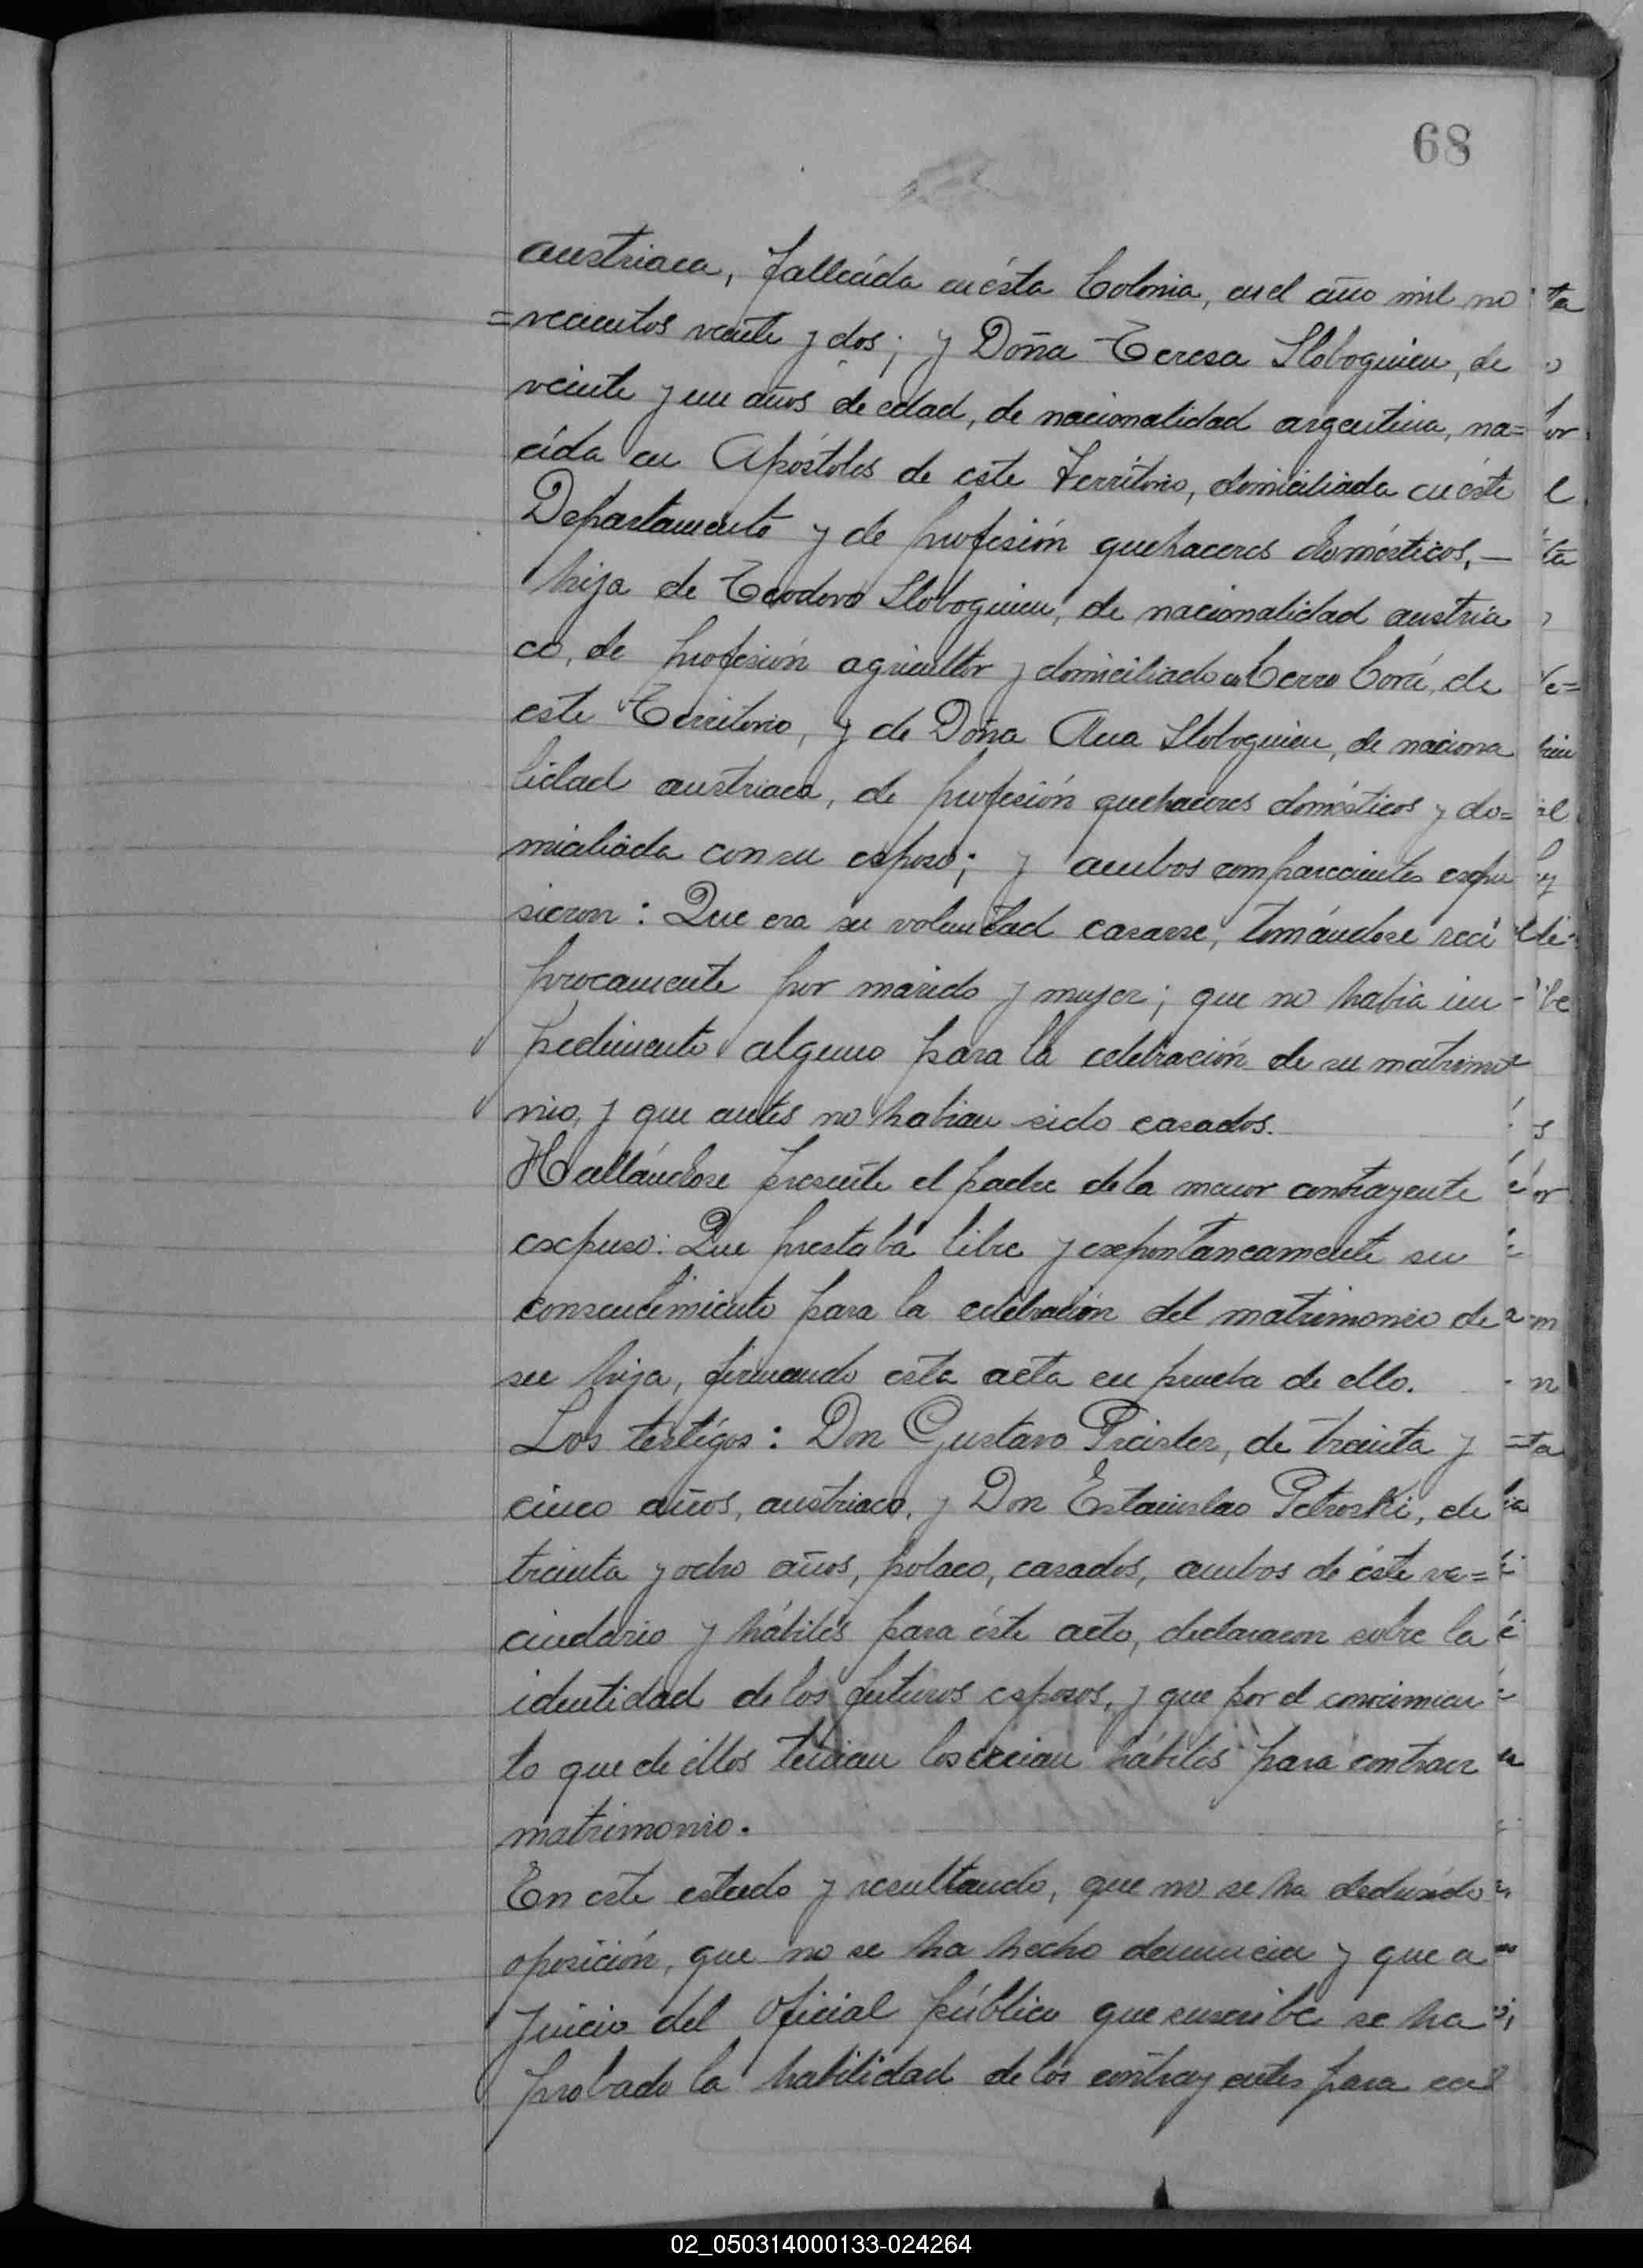 68
austriaca, fallecida en ésta Colonia, en el año mil no
=vecientos veinte y dos; y Doña Teresa Sloboguien, de
veinte y un años de edad, de nacionalidad argentina, na=
cida en Apóstoles de este Territorio, domiciliada en éste
Departamento y de profesión quehaceres domésticos, —
hija de Teodoro Sloboguien, de nacionalidad austria
co, de profesión agricultor y domiciliado en Cerro Corá, de
este Territorio, y de Doña Ana Sloboguien, de naciona
lidad austriaca, de profesión quehaceres domésticos y do=
miciliada con su esposo; y ambos comparecientes expu
sieron: Que era su voluntad casarse, tomándose reci
procamente por marido y mujer; que no habia im-
pedimento alguno para la celebración de su matrimo
nio, y que antes no habian sido casados.
Hallándose presente el padre de la menor contrayente
expuso: Que prestaba libre y expontaneamente su
consentimiento para la celebración del matrimonio de
su hija, firmando esta acta en prueba de ello.
Los testigos: Don Gustavo Preister, de treinta y
cinco años, austriaco, y Don Estanislao Petroski, de
treinta y ocho años, polaco, casados, ambos de éste ve=
cindario y hábiles para éste acto, declararon sobre la
identidad de los futuros esposos, y que por el conocimien
to que de ellos tenian los creian hábiles para contraer
matrimonio.
En este estado y resultando, que no se ha deducido
oposición, que no se ha hecho denuncia y que a
juicio del Oficial público que suscribe se ha
probado la habilidad de los contrayentes para ca
02_050314000133-024264